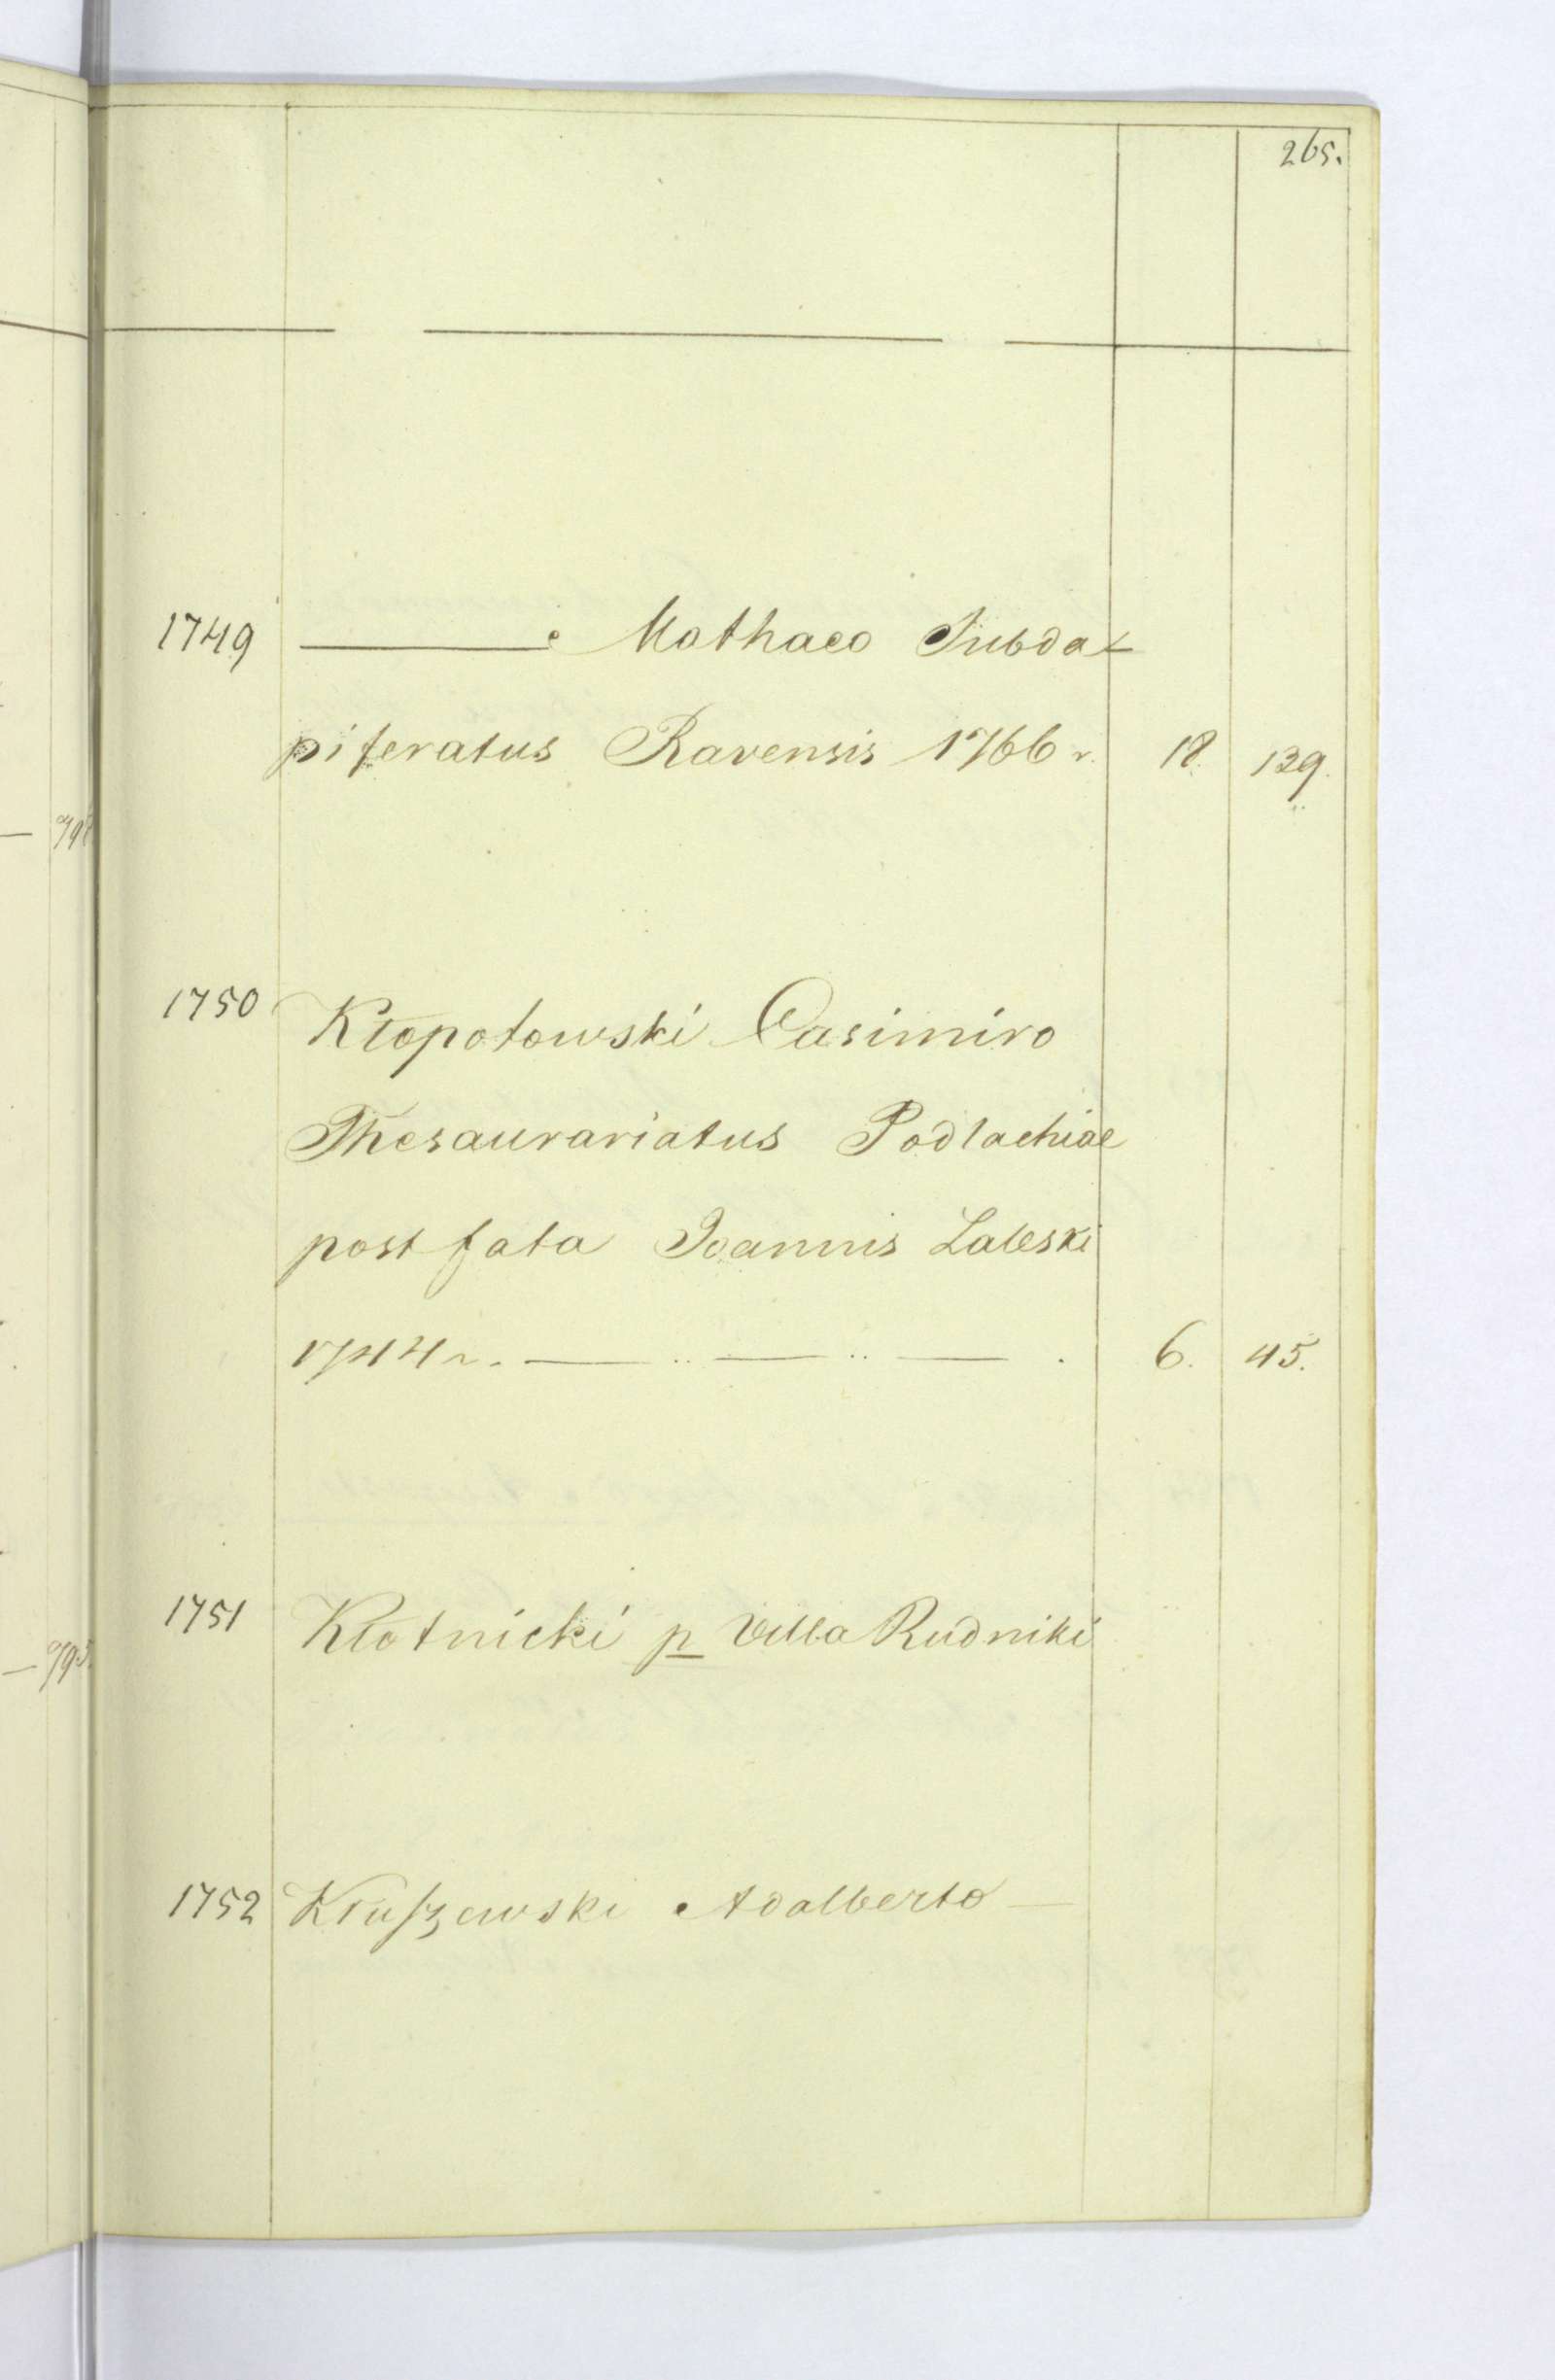 265.
1749 ——— Mathaeo Subda-
piferatus Ravensis 1766 r. 18. 139.
1750 Kłopotowski Casimiro
Thesaurariatus Podlachiae
post fata Joannis Zaleski
1744 r. — .. — .. — . 6. 45.
1751 Kłotnicki p Villa Rudniki
1752 Kłuszewski Adalberto —